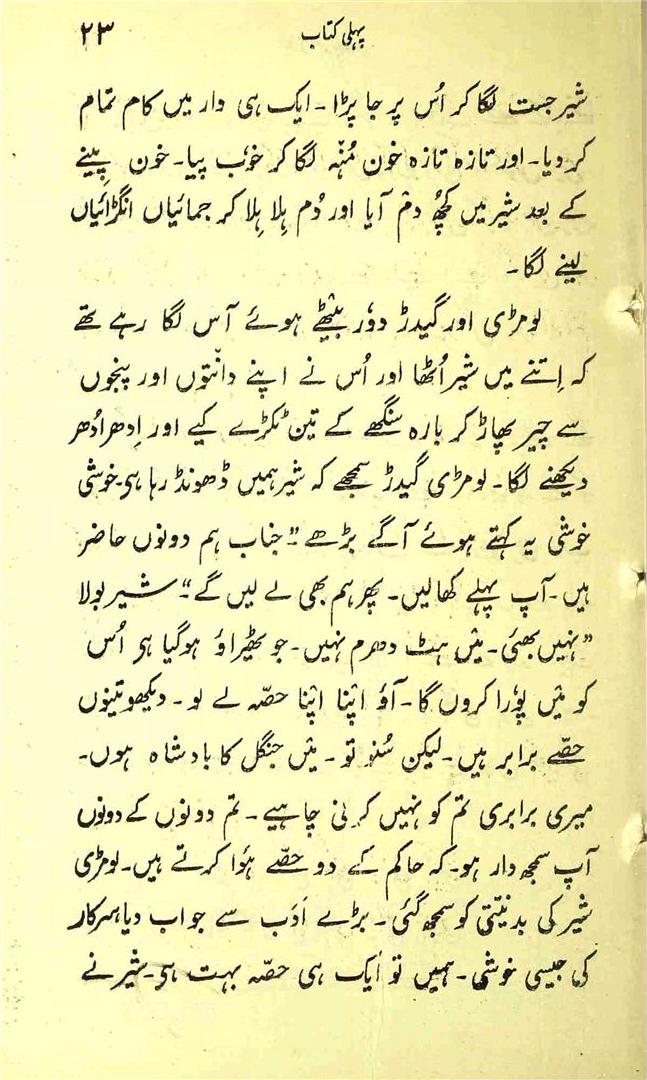 پہلی کتاب ۲۳
شیر جست لگا کر اُس پر جا پڑا ۔ ایک ہی وار میں کام تمام
کر دیا ۔ اور تازہ تازہ خون مُنہ لگا کر خوب پیا ۔ خون پینے
کے بعد شیر میں کچھ دم آیا اور دُم ہِلا ہِلا کر جمائیاں انگڑائیاں
لینے لگا ۔
لومڑی اور گیدڑ دور بیٹھے ہوئے آس لگا رہے تھے
کہ اِتنے میں شیر اُٹھا اور اُس نے اپنے دانتوں اور پنجوں
سے چیر پھاڑ کر بارہ سنگھے کے تین ٹکڑے کیے اور اِدھر اُدھر
دیکھنے لگا ۔ لومڑی گیدڑ سمجھے کہ شیر ہمیں ڈھونڈ رہا ہی ۔ خوشی
خوشی یہ کہتے ہوئے آگے بڑھے "جناب ہم دونوں حاضر
ہیں ۔ آپ پہلے کھالیں ۔ پھر ہم بھی لے لیں گے" ۔ شیر بولا
"نہیں بھئی ۔ میں ہٹ دھرم نہیں ۔ جو ٹھیراؤ ہوگیا ہی اُس
کو میں پورا کروں گا ۔ آؤ اپنا اپنا حصّہ لے لو ۔ دیکھو تینوں
حصّے برابر ہیں ۔ لیکن سُنو تو ۔ میں جنگل کا بادشاہ ہوں ۔
میری برابری تم کو نہیں کرنی چاہیے ۔ تم دونوں کے دونوں
آپ سمجھ دار ہو ۔ کہ حاکم کے دو حصّے ہؤا کرتے ہیں ۔ لومڑی
شیر کی بدنیتی کو سمجھ گئی ۔ بڑے اَدَب سے جواب دیا سرکار
کی جیسی خوشی ۔ ہمیں تو ایک ہی حصّہ بہت ہی ۔ شیر نے